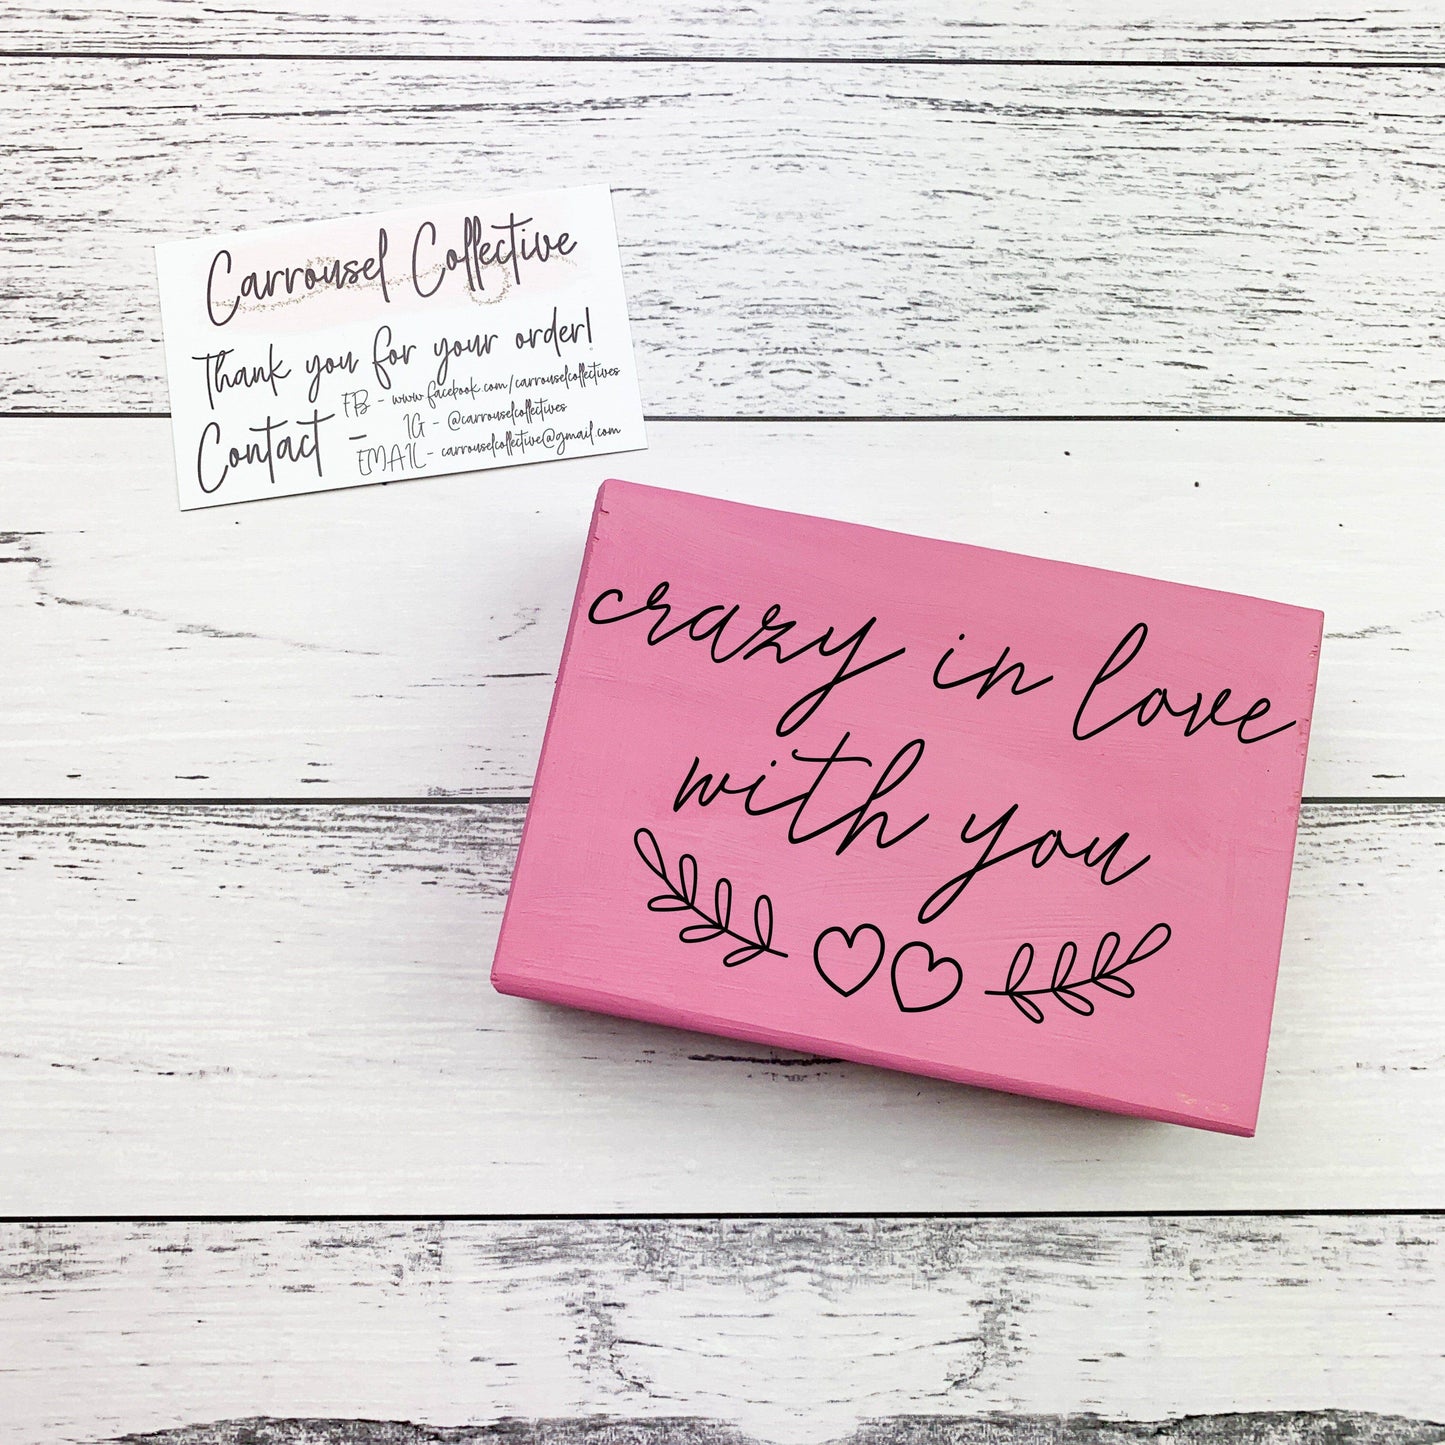 Carrousel Collective
Thank you for your order!
Contact -
FB - www.facebook.com/carrouselcollectives
IG - @carrouselcollectives
EMAIL - carrouselcollective@gmail.com
crazy in love
with you